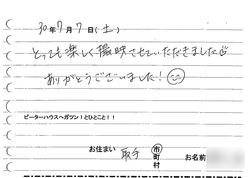 30年7月7日(土)
とっても楽しく撮影させていただきました
ありがとうございました!
ピーターハウスへガツン!とひとこと!!
お住まい 取手 市 町 村 お名前